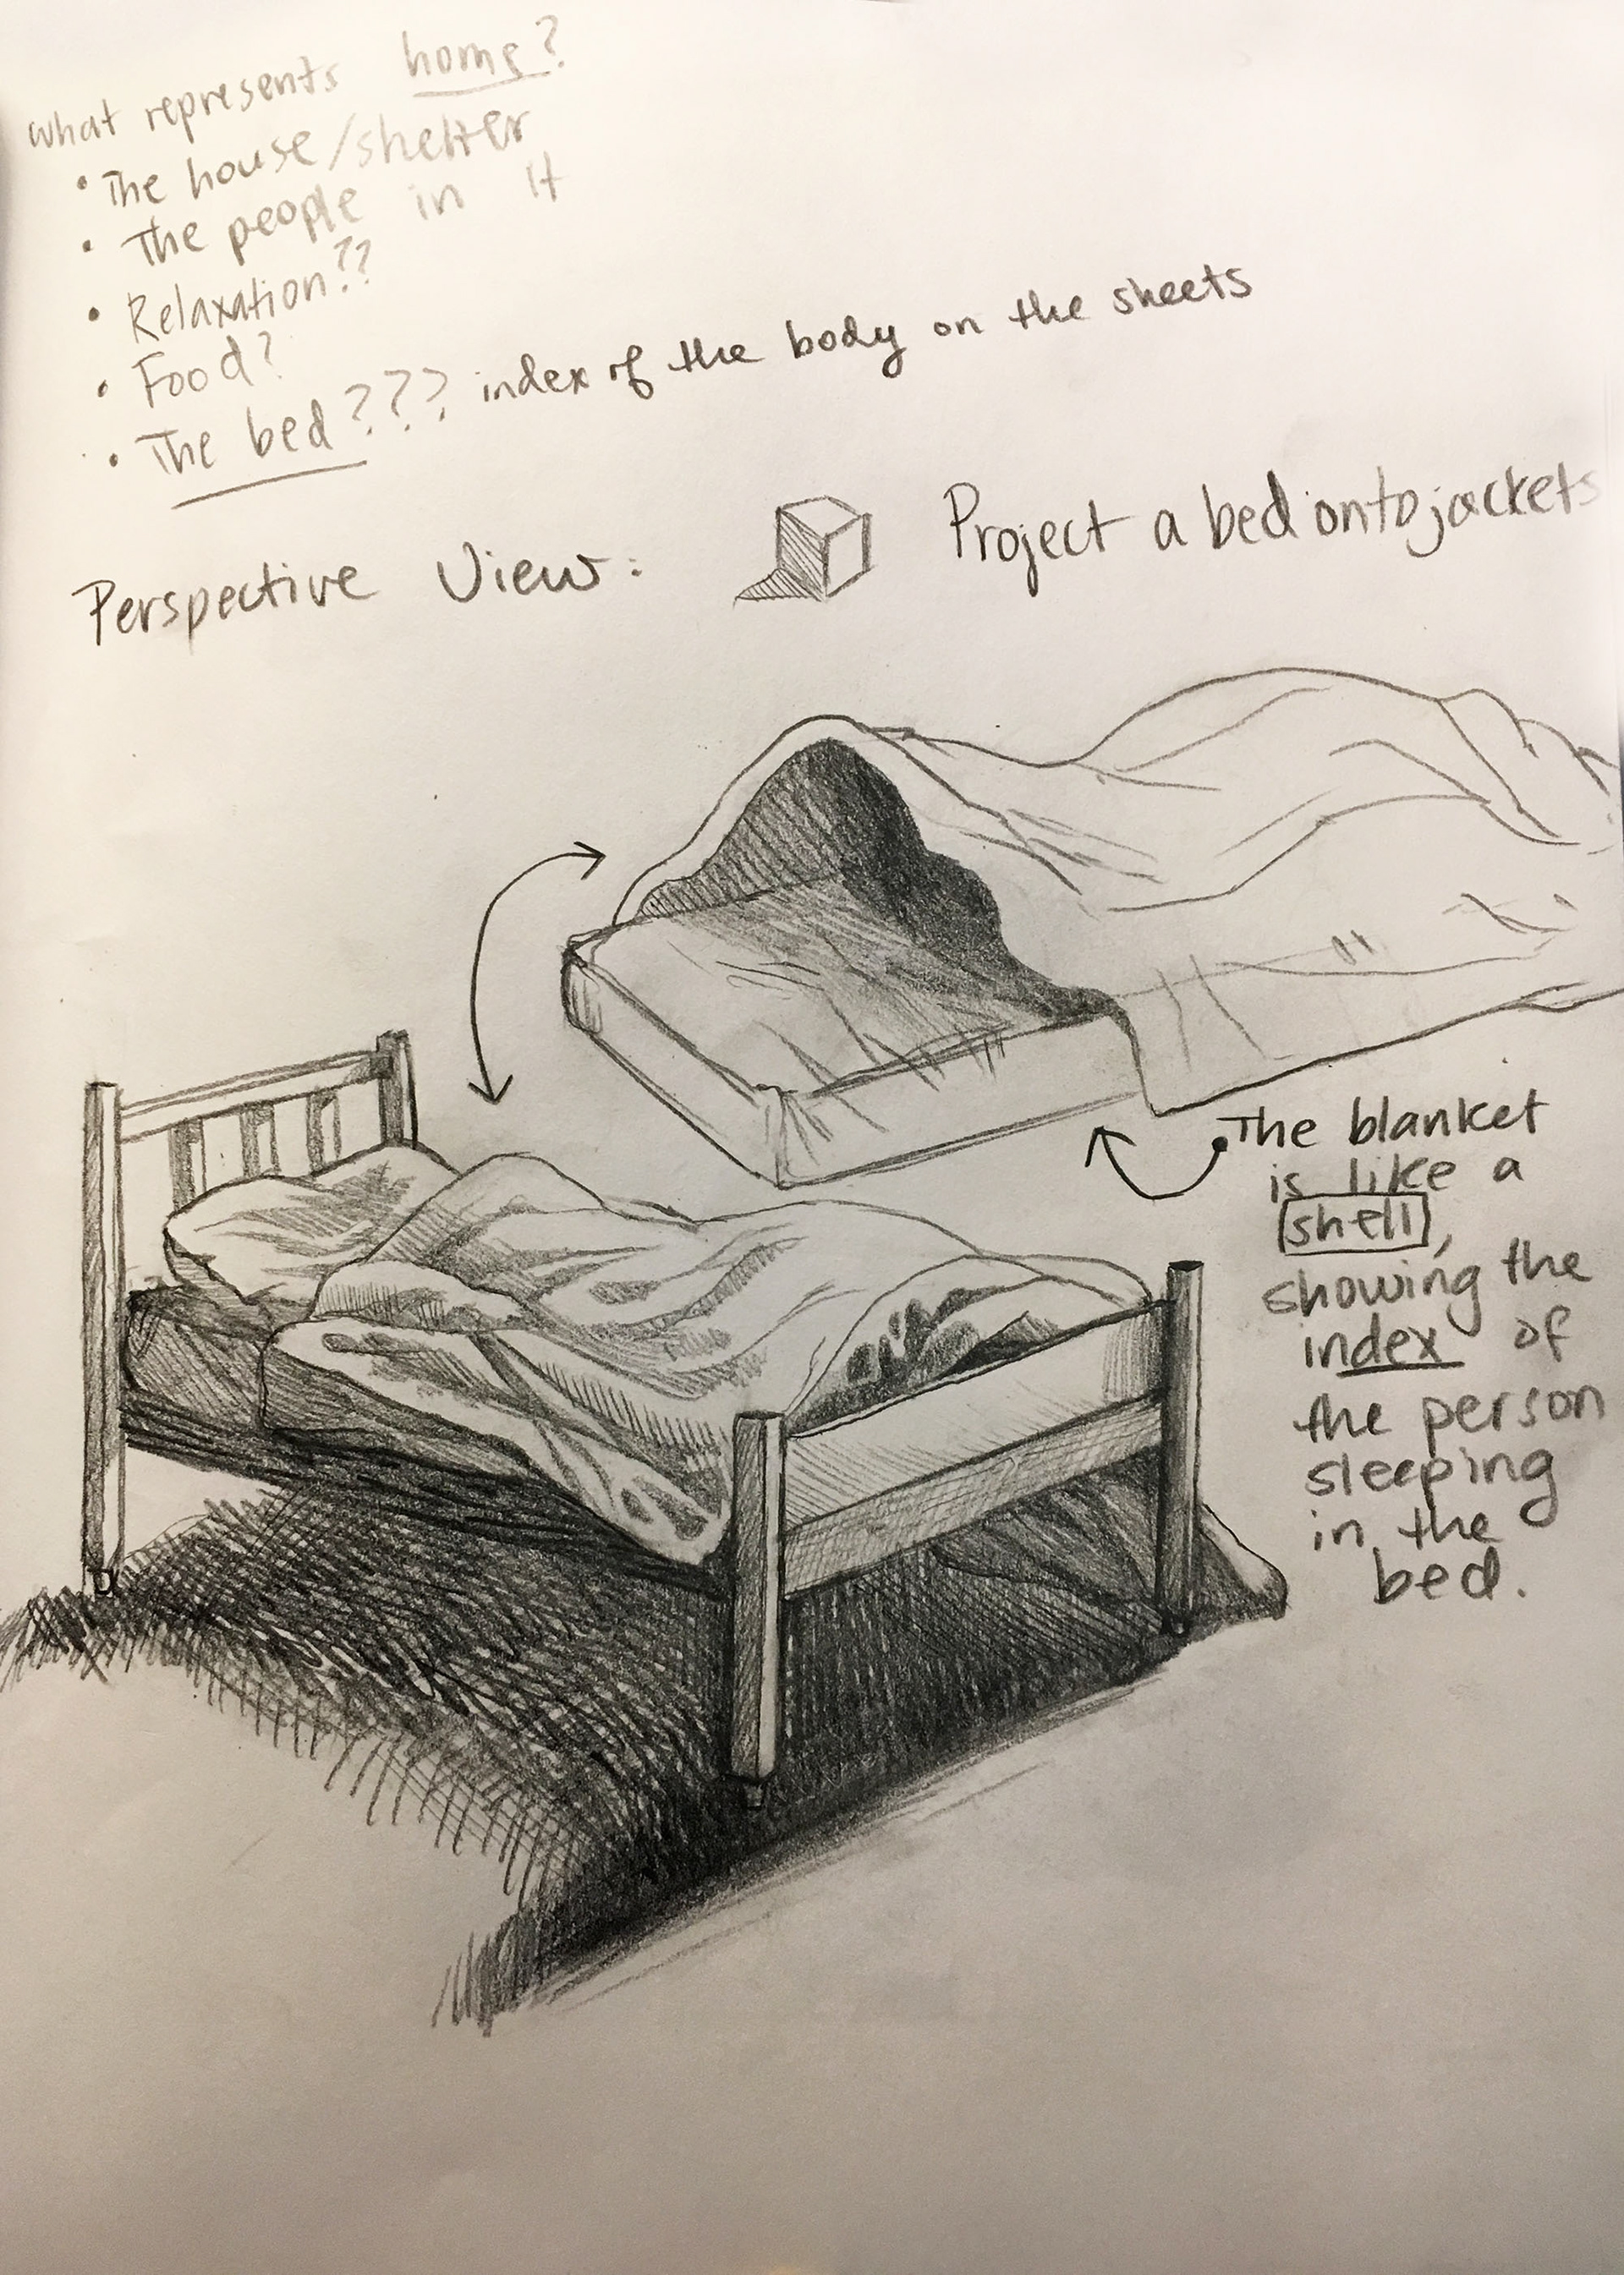 What represents home?
• The house/shelter
• The people in it
• Relaxation??
• Food?
• The bed??? index of the body on the sheets
Perspective View:
Project a bed onto jackets
The blanket
is like a
shell,
showing the
index of
the person
sleeping
in the
bed.